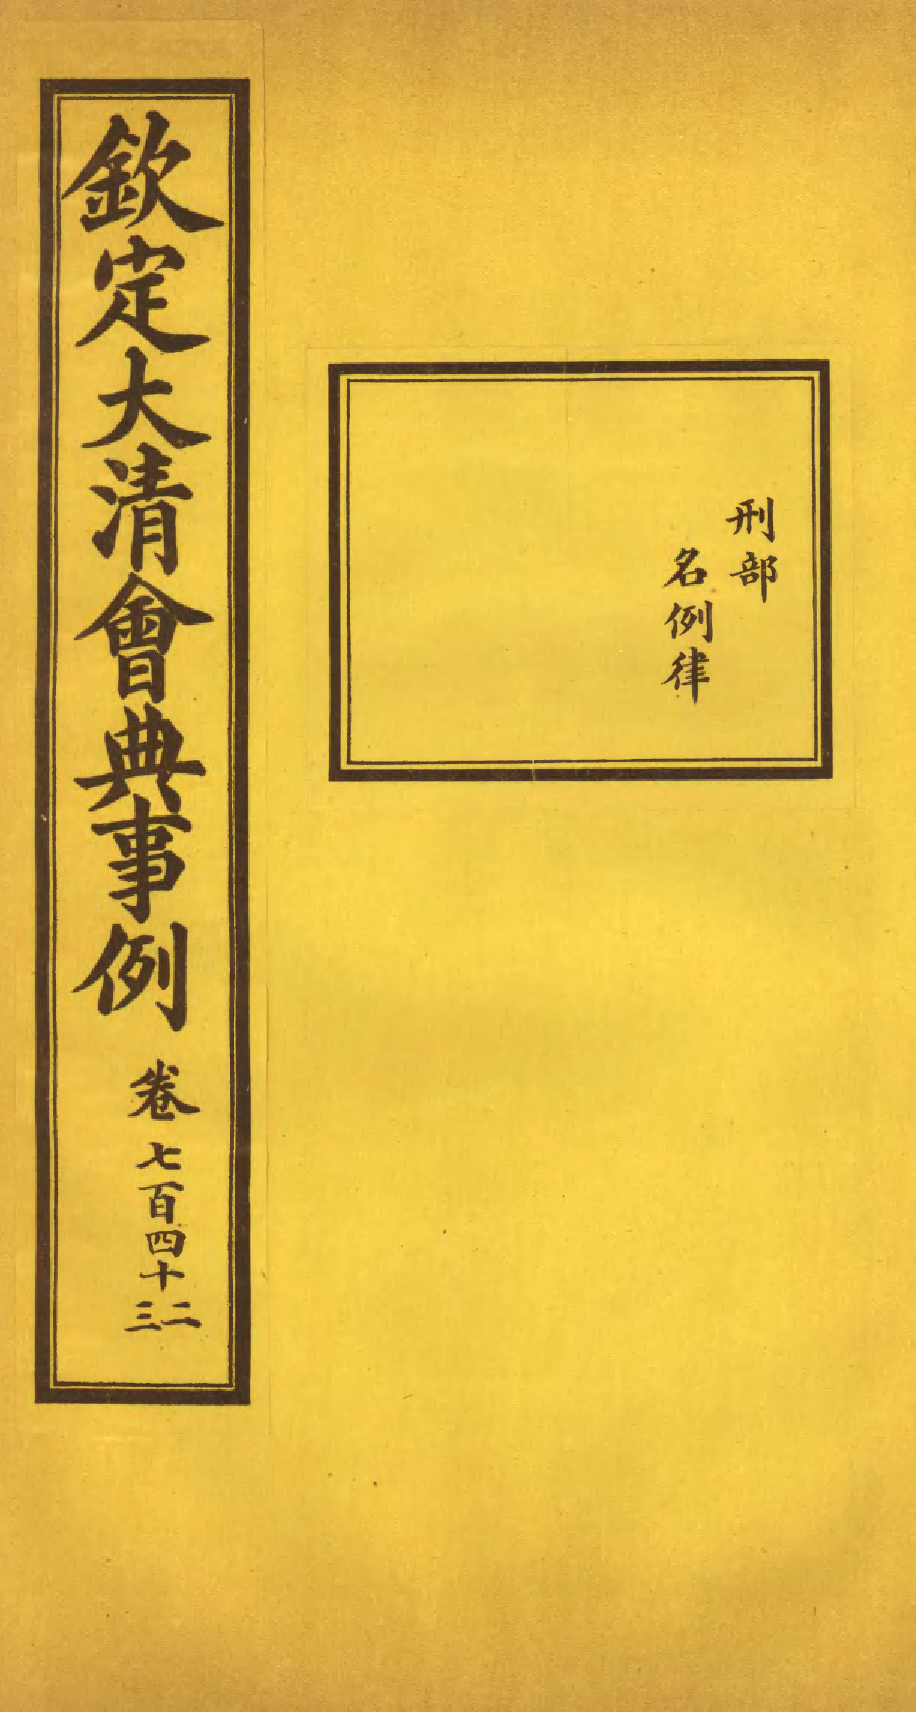 刑部
名例律
欽定大清會典事例 卷七百四十二三